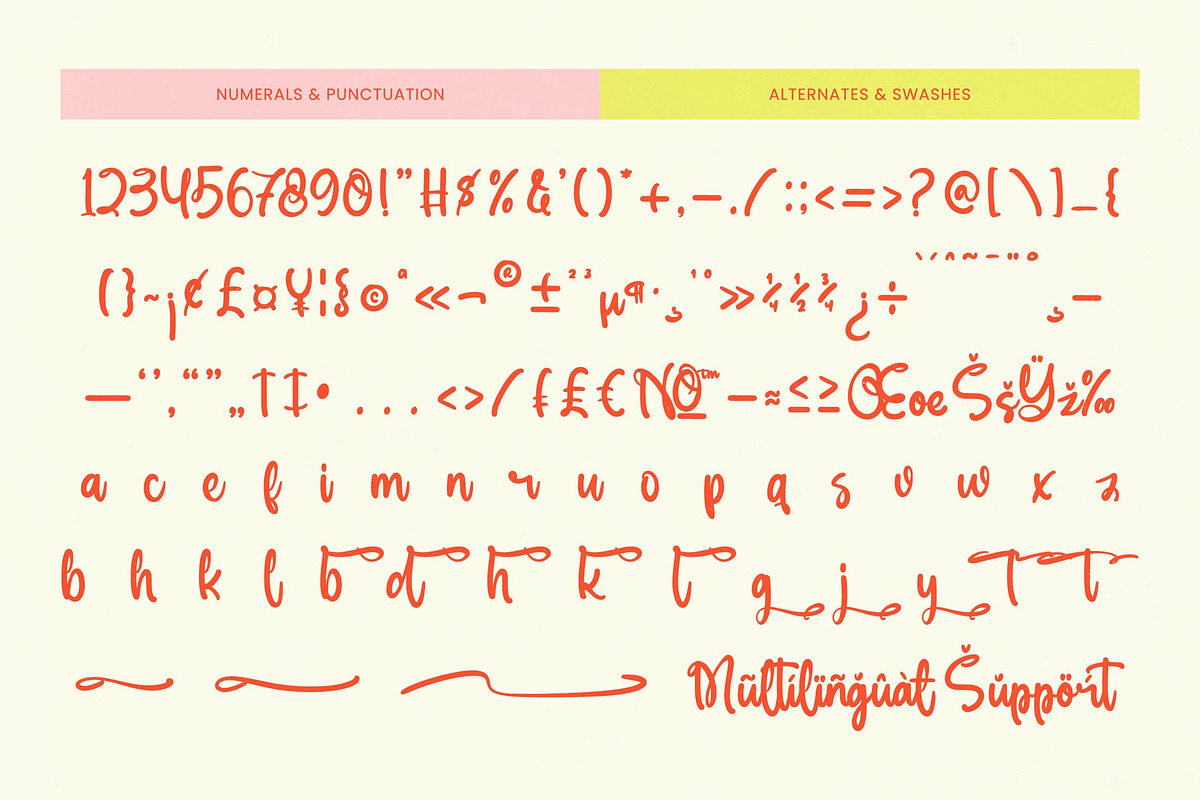 NUMERALS & PUNCTUATION
ALTERNATES & SWASHES
1234567890!”#$%&’()*+,-./:;<=>?@[\]_{
(}~¡¢£¤¥¦§©ª«¬®±²³µ¶·¸¹º»¼½¾¿÷ˋˊˆ˜¯¨˚¸–
—‘’‚“”„†‡•...‹›⁄ƒ£€№™−≈≤≥ŒœŠšŸž‰
a c e f i m n r u o p q s v w x z
b h k l b d h k l g j y T t
Mũltílïñğûàł Šŭppöŕt